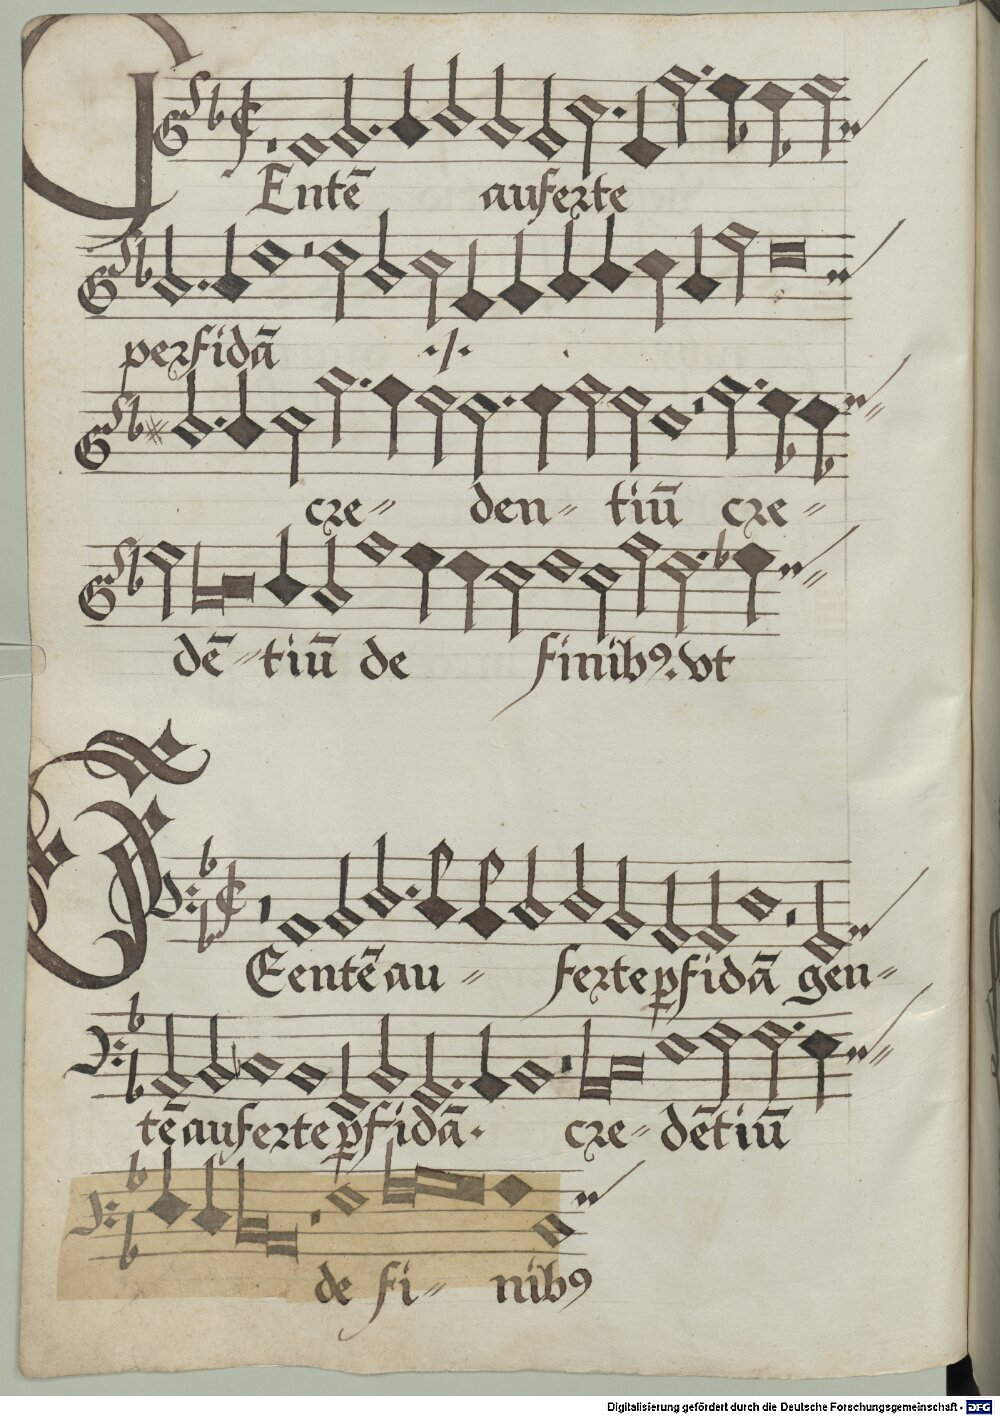 Gentē auferte
perfidā ·/·
cre- den- tiū cre-
dē-tiū de finibꝯ. vt
Gentē au- ferte ꝑfidā gen-
tē auferte ꝑfidā. cre- dētiū
de fi- nibꝯ
Digitalisierung gefördert durch die Deutsche Forschungsgemeinschaft - DFG